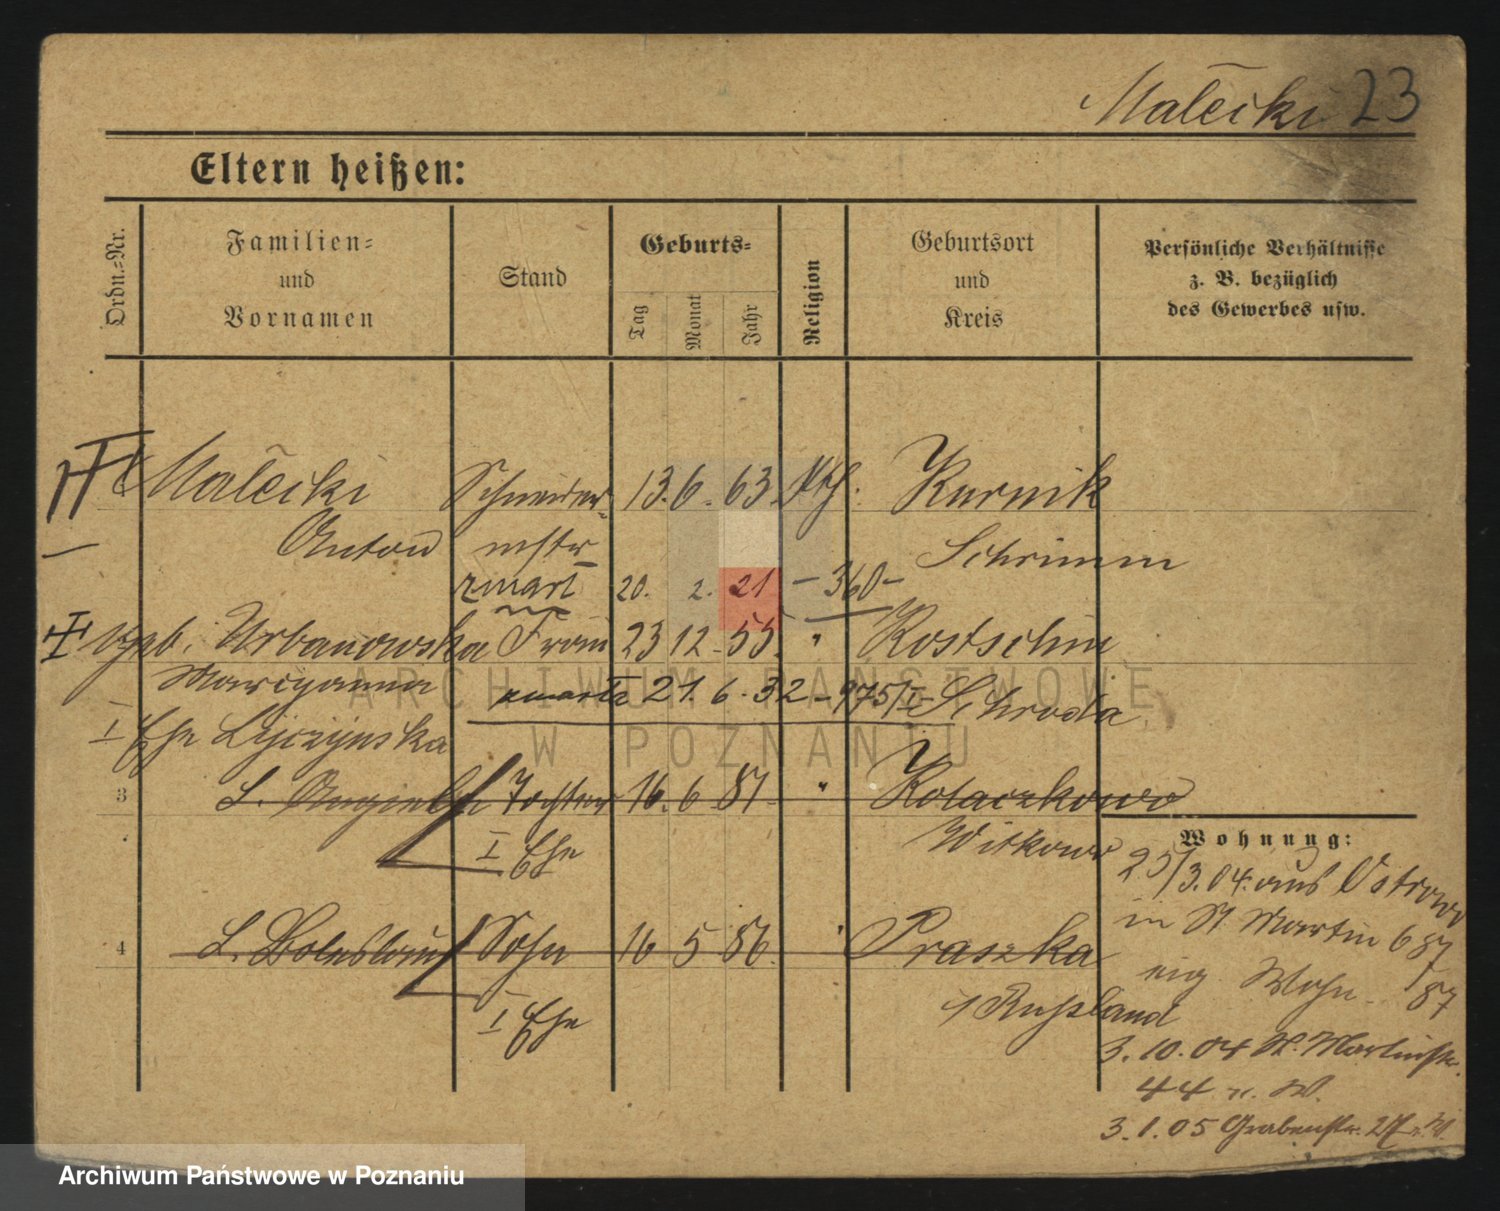 Malecki 23
Eltern heißen:
Ordn.=Nr.
Familien=
und
Vornamen
Stand
Geburts=
Tag
Monat
Jahr
Religion
Geburtsort
und
Kreis
Persönliche Verhältnisse
z. B. bezüglich
des Gewerbes usw.
Malecki Schneider= 13. 6. 63. kth. Kurnik
Anton mstr Schrimm
zmarł 20. 2. 21 – 360 –
geb. Urbanowska Frau 23 12. 55. " Kostschin
Maryanna zmarła 21. 6. 32 – 975/I – Schroda
I Ehe Lijczynska
3 L. Tochter 16. 6. 87. " Kolaczkowo
I Ehe Witkowo
4 L. Boleslaus Sohn 16 5 86. " Praszka
I Ehe Russland
Wohnung:
25/3.04. aus Ostrowo
in St Martin 687
eig. Wohn. 87
3. 10. 04 St. Martinstr.
44 n. W.
3. 1. 05 Grabenstr. 27
ARCHIWUM PAŃSTWOWE
W POZNANIU
Archiwum Państwowe w Poznaniu